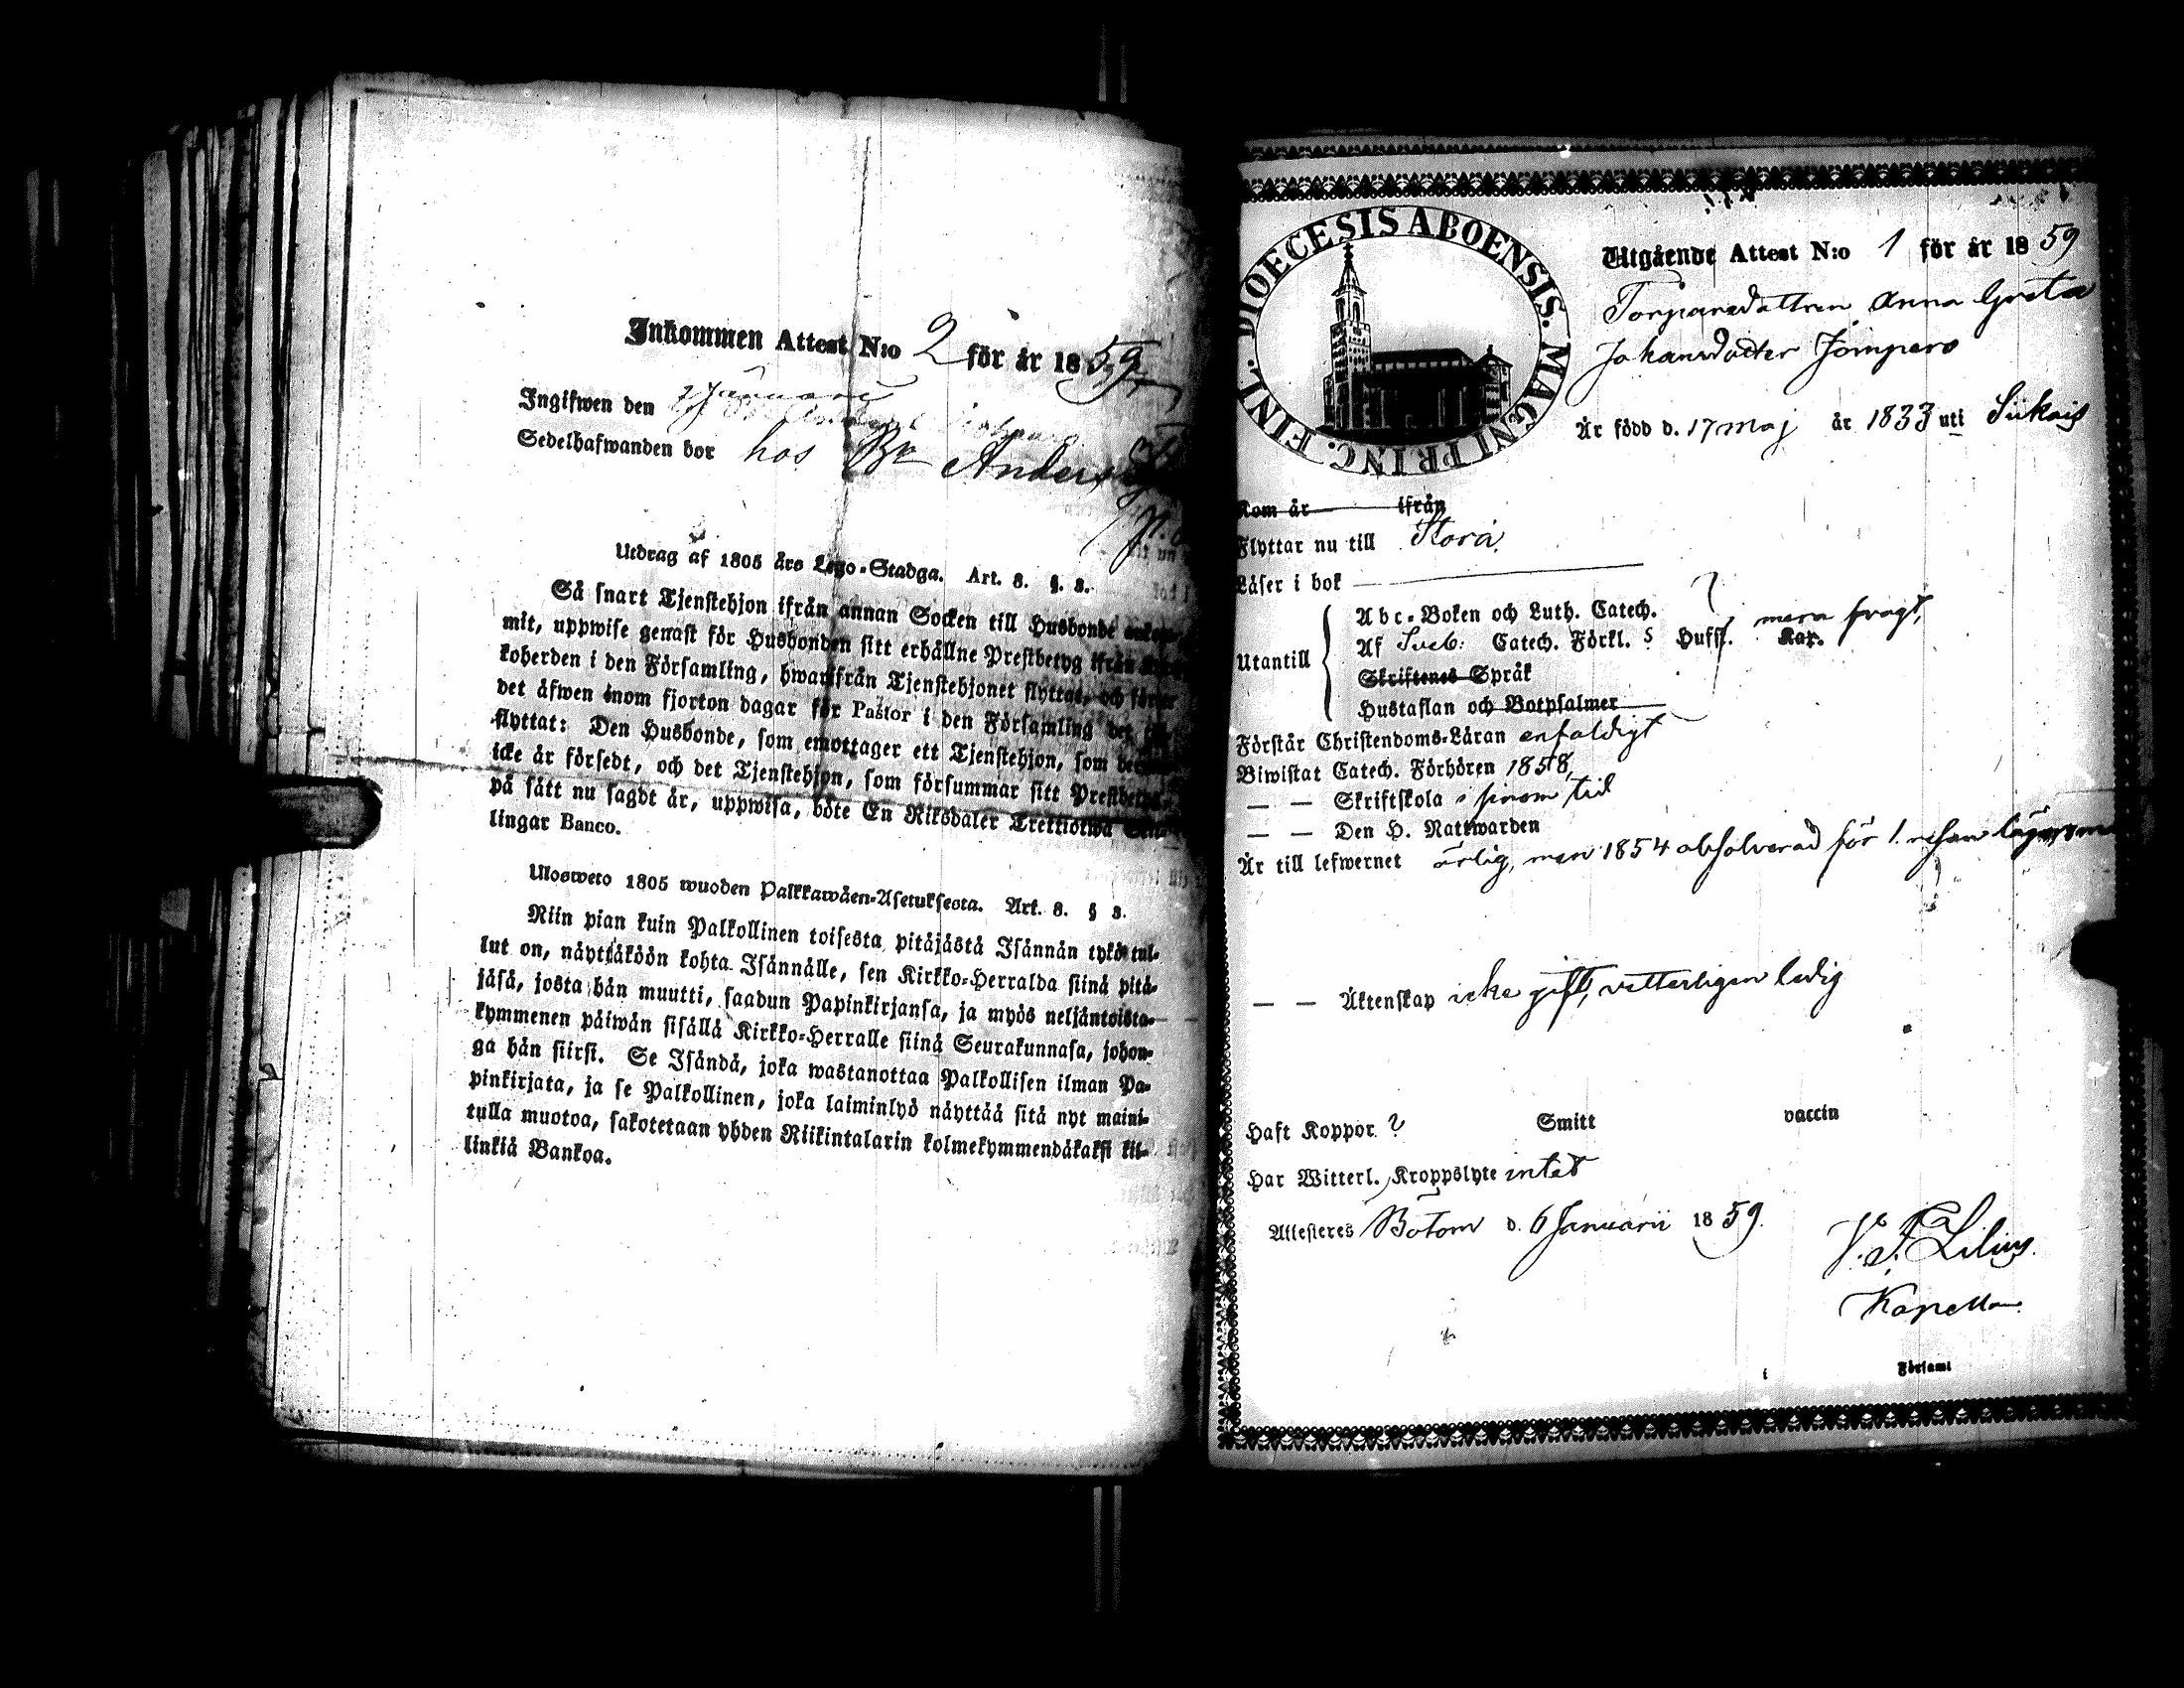 Inkommen Attest N:o 2 för år 1859
Ingifwen den Januari
Sedelhafwanden bor hos Bn Anders
Utdrag af 1805 års Lego-Stadga. Art. 8. §. 3.
Så snart Tjenstehjon ifrån annan Socken till Husbonde
mit, uppwise genast för Husbonden sitt erhållne Prestbetyg ifrån
koherden i den Församling, hwarifrån Tjenstehjonet flyttat, och
det äfwen inom fjorton dagar för Pastor i den Församling det
flyttat: Den Husbonde, som emottager ett Tjenstehjon, som
icke är försedt, och det Tjenstehjon, som försummar sitt
på sätt nu sagdt är, uppwisa, böte En Riksdaler Trettiotwå
lingar Banco.
Ulosweto 1805 wuoden Palkkawäen-Asetuksesta. Art. 8. § 3.
Niin pian kuin Palkollinen toisesta pitäjästä Isännän tykö tul-
lut on, näyttäköön kohta Isännälle, sen Kirkko-Herralda siinä pitä-
jäsä, josta hän muutti, saadun Papinkirjansa, ja myös neljäntoista-
kymmenen päiwän sisällä Kirkko-Herralle siinä Seurakunnasa, johon-
ga hän siirsi. Se Isändä, joka wastanottaa Palkollisen ilman Pa-
pinkirjata, ja se Palkollinen, joka laiminlyö näyttää sitä nyt maini-
tulla muotoa, sakotetaan yhden Riikintalarin kolmekymmendäkaksi kil-
linkiä Bankoa.
DIOECESIS ABOENSIS. MAGNI PRINC. FINL.
Utgående Attest N:o 1 för år 1859
Torparedottren Anna Greta
Johansdotter Jompero
Är född d. 17 Maj år 1833 uti Siikais
Kom år ifrån
Flyttar nu till Storå.
Läser i bok
Utantill
Abc-Boken och Luth. Catech.
Af Sveb: Catech. Förkl. 5 Hufst. Kap. mera svagt,
Skriftenes Språk
Hustaflan och Botpsalmer
Förstår Christendoms-Läran enfaldigt
Biwistat Catech. Förhören 1858,
— — Skriftskola i sinom tid
— — Den H. Nattwarden
Är till lefwernet ärlig, men 1854 absolverad för 1. resan
— — Äktenskap icke gift, vetterligen ledig
Haft Koppor ? Smitt vaccin
Har Witterl. Kroppslyte intet
Attesteres Bötom d. 6 Januarii 1859.
V. F. Lilius.
Kapellan.
i Församl